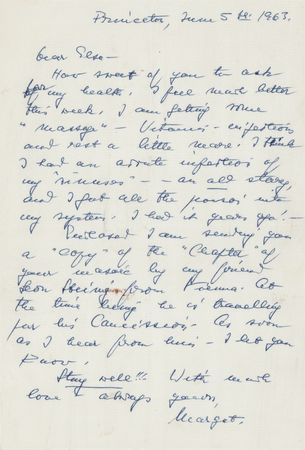 Princeton, June 5th 1963.
Dear Elsa—
How sweet of you to ask
for my health. I feel much better
this week. I am getting some
"massage" — Vitamin — injections
and rest a little more. I think
I had an acute infection of
my "sinuses" — an old story,
and I got all the poison into
my system. I had it years ago! —
Enclosed I am sending you
a "copy" of the "Chapter" of
your by my friend
from Vienna. At
the time being he is travelling
for his . As soon
as I hear from him — I let you
know.
Stay well!!! With much
love always yours,
Margot.